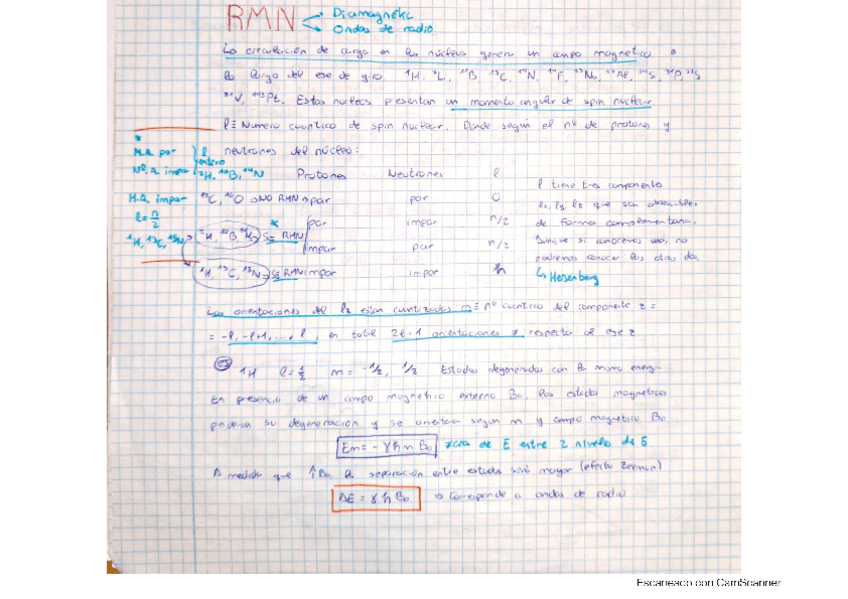 RMN → Diamagnétic
→ Ondas de radio
La circulación de carga en los núcleos genera un campo magnético a
lo largo del eje de giro. ¹H, ⁷Li, ¹¹B, ¹³C, ¹⁴N, ¹⁹F,
Estos núcleos presentan un momento angular de spin nuclear.
l ≡ Número cuántico de spin nuclear. Donde según el nº de protones y
neutrones del núcleo:
M.a. par
Nº. a. impar } l entero ²H, ¹⁰B, ¹⁴N
Protones Neutrones l
M.a. impar
l = n/2
¹H, ¹³C, ¹⁵N
¹²C, ¹⁶O → NO RMN → par par 0
²H, ¹⁰B, → Sí RMN par impar n/2
impar par n/2
¹H, ¹³C, ¹⁵N → Sí RMN impar impar
l tiene tres componentes
lx, ly, lz que son observables
de forma complementaria.
Aunque si conocemos uno, no
podremos conocer los otros dos
↳ Heisenberg
Las orientaciones del lz están cuantizadas m ≡ nº cuántico del componente z =
= -l, -l+1, ..., l, en total 2l+1 orientaciones ≠ respecto al eje z
ej ¹H l = 1/2 m = -1/2, 1/2 Estados degenerados con la misma energía
En presencia de un campo magnético externo B₀. Los estados magnéticos
pierden su degeneración y se orientan según m y campo magnético B₀
Em = -γħm B₀ ≠cia de E entre 2 niveles de E
A medida que ↑B₀, la separación entre estados será mayor (efecto Zeeman)
ΔE = γħB₀ ⇒ Corresponde a ondas de radio
Escaneado con CamScanner